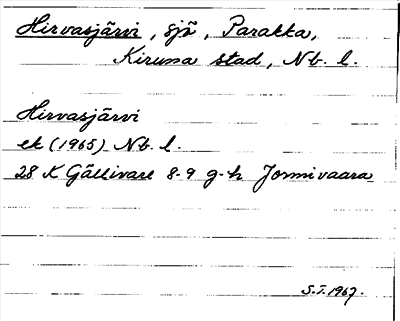 Hirvasjärvi, sjö, Parakka,
Kiruna stad, Nb. l.
Hirvasjärvi
ek (1965) Nb. l.
28 K Gällivare 8-9 g-h Jormivaara
S.I. 1967.